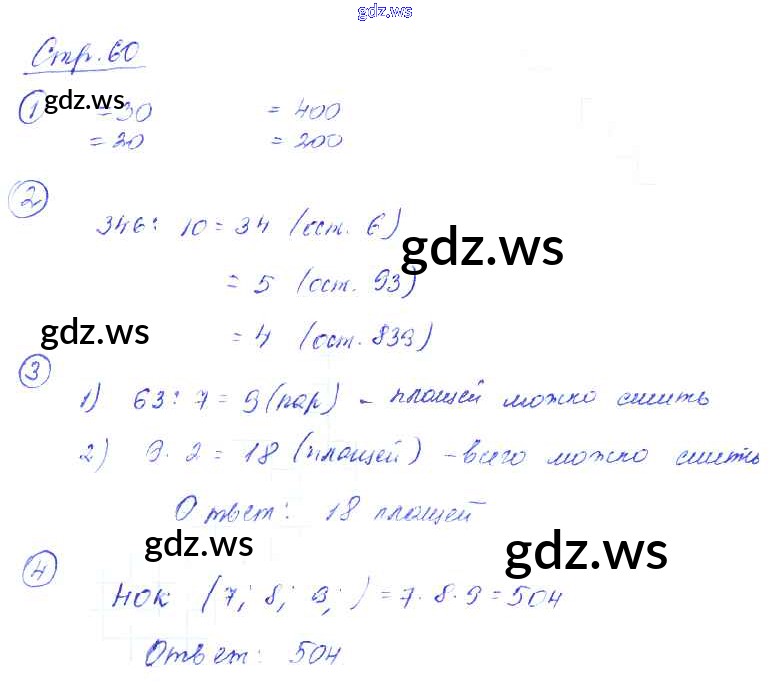 gdz.ws
Стр. 60
① gdz.ws =30 = 400
=20 = 200
②
346: 10 = 34 (ост. 6)
gdz.ws
= 5 (ост. 93)
gdz.ws
= 4 (ост. 839)
③
1) 63: 7 = 9 (пар) - плащей можно сшить
2) 9 · 2 = 18 (плащей) - всего можно сшить
Ответ: 18 плащей
gdz.ws
gdz.ws
④
НОК (7; 8; 9; ) = 7 · 8 · 9 = 504
Ответ: 504